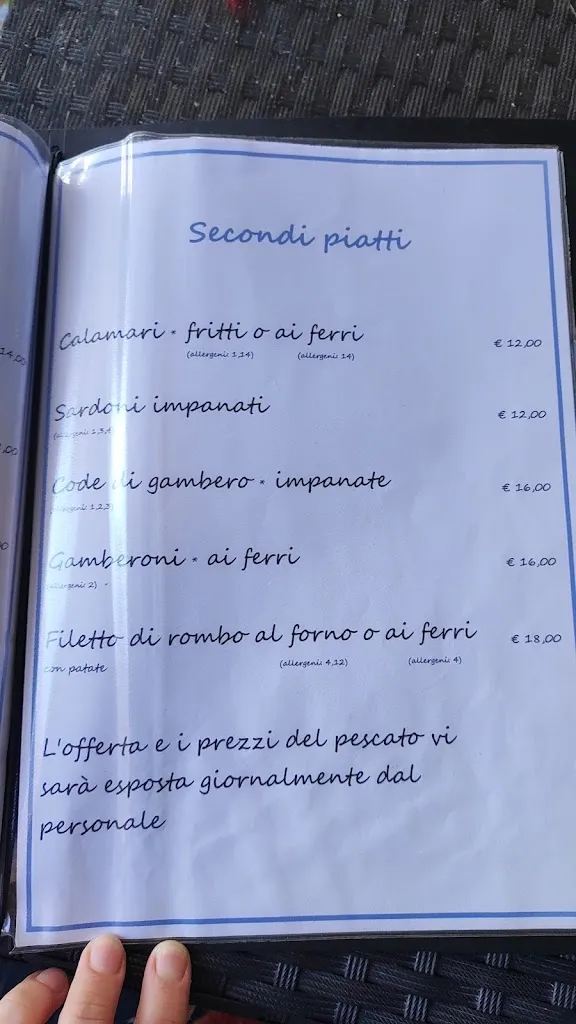 Secondi piatti
Calamari * fritti o ai ferri € 12,00
(allergeni: 1,14) (allergeni: 14)
Sardoni impanati € 12,00
(allergeni: 1,3,4)
Code di gambero * impanate € 16,00
(allergeni: 1,2,3)
Gamberoni * ai ferri € 16,00
(allergeni: 2)
Filetto di rombo al forno o ai ferri € 18,00
con patate (allergeni: 4,12) (allergeni: 4)
L'offerta e i prezzi del pescato vi
sarà esposta giornalmente dal
personale